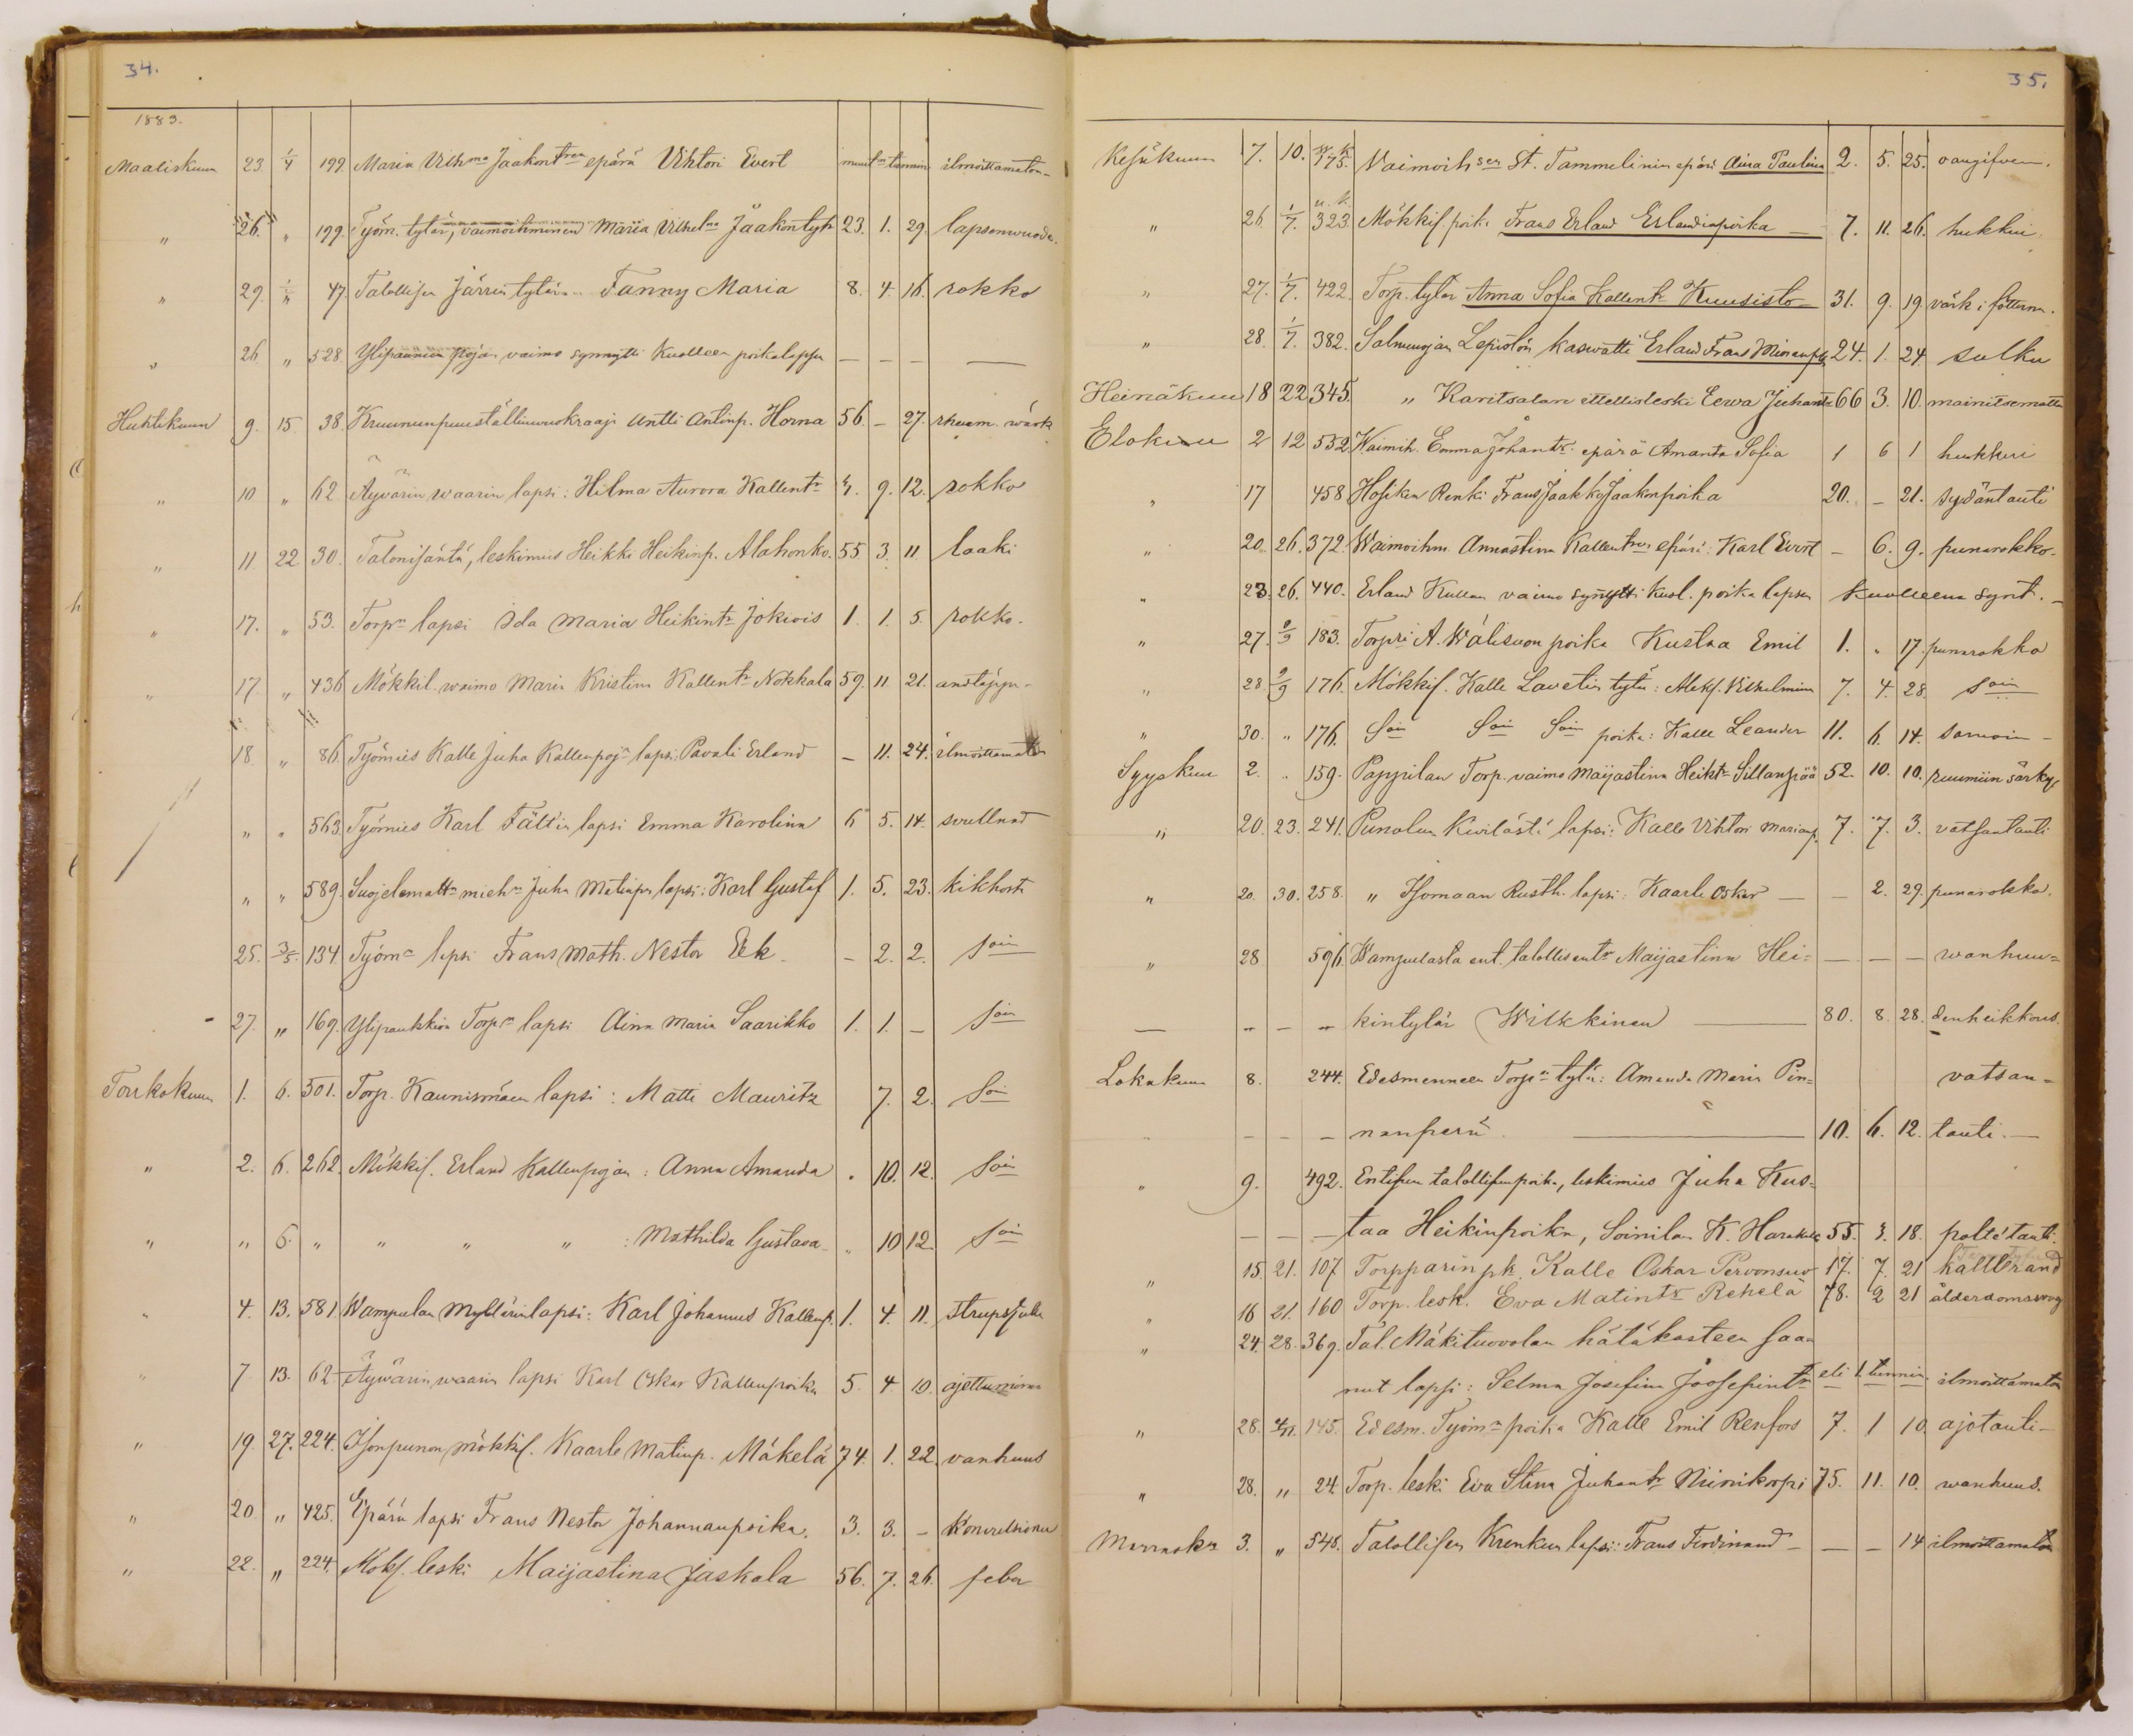 34.
1883.
Maaliskuun 23. 1/4 199. Maria Vilhma Jaakontran epärä Vihtori Evert muut-tunnin ilmoittamaton-
" 26. " 199. Työm. tytär, vaimoihminen Maria Vilhelma Jaakontytr 23. 1. 29. lapsenwuode.
" 29. " 47. Talollisen Järrin tytär Fanny Maria 8. 4. 16. rokko
" 26 " 528 pojan vaimo synnytti Kuolleen poikalapsen — — — —
Huhtikuun 9. 15. 38. Antti Antinp. Horna 56. - 27. rheum. wärk
" 10 " 62 Äyvärin waarin lapsi: Hilma Aurora Kallentr 9. 12. rokko
" 11 22 30. Talonisäntä, leskimies Heikki Heikinp. Alahonko. 55 3. 11 laaki
" 17. " 53. Torpn lapsi Ida Maria Heikintr Jokiois 1. 1. 5. rokko.
" 17 " 436 Mökkil. waimo Maria Kristina Kallentr Nokkala 59. 11 21.
18. " 86. Työmies Kalle Juha Kallenpojn lapsi: Pavali Erland - 11. 24. ilmoittamaton
" " 563 Työmies Karl Fältin lapsi Emma Karolina 6 5. 14. svullnad
" " 589. Suojelematt. miehn Juha Matinpn lapsi: Karl Gustaf 1. 5. 23. kikhosta
25. 3/5. 134 Työmn lapsi Frans Math. Nestor Eek - 2. 2. soin
- 27. " 169. Torpn lapsi Aina Maria Saarikko 1. 1. - soin
Toukokuun 1. 6. 501. Torp. Kaunismäen lapsi: Matti Mauritz 7. 2. Soin
" 2. 6. 262. Mökkis. Erland Kallenpojan: Anna Amanda . 10. 12. Soin
" " 6. " " " " : Mathilda Gustava " 10 12. Soin
" 4. 13. 581 Wampulan Myllärin lapsi: Karl Johannes Kallenp. 1. 4. 11. strupsjuka
" 7 13. 62 Äywärin waarin lapsi Karl Oskar Kallenpoika 5. 4. 10. ajettuminen
" 19. 27. 224. Isonpunon mökkis. Kaarle Matinp. Mäkelä 74. 1. 22. vanhuus
" 20. " 425. Epärä lapsi Frans Nestor Johannanpoika. 3. 3. -
" 22. " 224. leski Maijastina Jaskala 56. 7. 26. feber
35.
Kesäkuun 7. 10. 175. Vaimoihsen St. Tammelinin epärä Aina Paulina 2. 5. 25.
" 26. 1/7. 323. Mökkis. poika Frans Erland Erlandinpoika — 7. 11. 26. hukkui.
" 27. 1/7. 422. Torp. tytär Anna Sofia Kallentr Kuusisto- 31. 9. 19. värk i fötterna.
" 28. 1/7. 382. Salmenojan kaswatti Erland Frans 24. 1. 24. sulku
Heinäkuu 18 22 345. " Karitsalan leski Eewa Juhantr 66 3. 10. mainitsematta
Elokuu 2 12 532 Waimih. Emma Johantr. epärä Amanta Sofia 1 6 1 hukkui
" 17 458 Renki Frans Jaakko Jaakonpoika 20. - 21. sydäntauti
" 20. 26. 372. Waimoihm. Annastina Kallentrn epärä: Karl Evert - 6. 9. punarokko.
" 23. 26. 440. Erland Kullan vaimo synytti kuol. poika lapsen kuolleena synt. -
" 27. 2/9 183. Torpri A. Wälisuon poika Kustaa Emil 1. " 17. punarokko
" 28. 2/9 176. Mökkis. Kalle Lavetin tytär: Aleks. Vilhelmina 7. 4. 28. Soin
" 30. " 176. Soin Soin Soin poika: Kalle Leander 11. 6. 14. samoin -
Syyskuu 2. " 159. Papyrilan Torp. vaimo Maijastina Heiktr Sillanpää 52. 10. 10. ruumiin särky
" 20. 23. 241. Punolan lapsi: Kalle Vihtori Marianp. 7. 7. 3. vatsantauti
" 20. 30. 258. " Isomaan Rusth. lapsi: Kaarle Oskar — — 2. 29. punarokko.
" 28 596 Wampulasta ent. talollisentr Maijastina Hei= — — — wanhuu=
— " - " kintytär Wilkkinen — 80. 8. 28. denheikkous.
Lokakuun 8. 244. Edesmenneen Torpn tytär: Amanda Maria Pin= vatsan=
- - - nanperä — 10. 6. 12. tauti.—
" 9. 492. Entisen talollisenpoika, leskimies Juha Kus=
- - - taa Heikinpoika, Soinilan K. 55. 3. 18. polttétauti.
" 15. 21. 107 Torpparin pk. Kalle Oskar 17. 7. 21 kallbrand
" 16 21. 160 Torp. lesk. Eva Matintr Rekelä 78. 2 21 ålderdomssvag
" 24. 28. 369. Tal. Mäkituvolan hätäkasteen saa=
nut lapsi: Selma Josefina Joosefintr eli 1 tunnin. ilmoittamaton
" 28. 4/11. 145. Edesm. Työmn poika Kalle Emil Renfors 7. 1 10. ajotauti-
" 28. " 24 Torp. leski Eva Stina Juhantr Niinikorpi 75. 11. 10. wanhuus.
Marrask. 3. " 548. Talollisen Krenkun lapsi: Frans Ferdinand - — - 14 ilmoittamaton